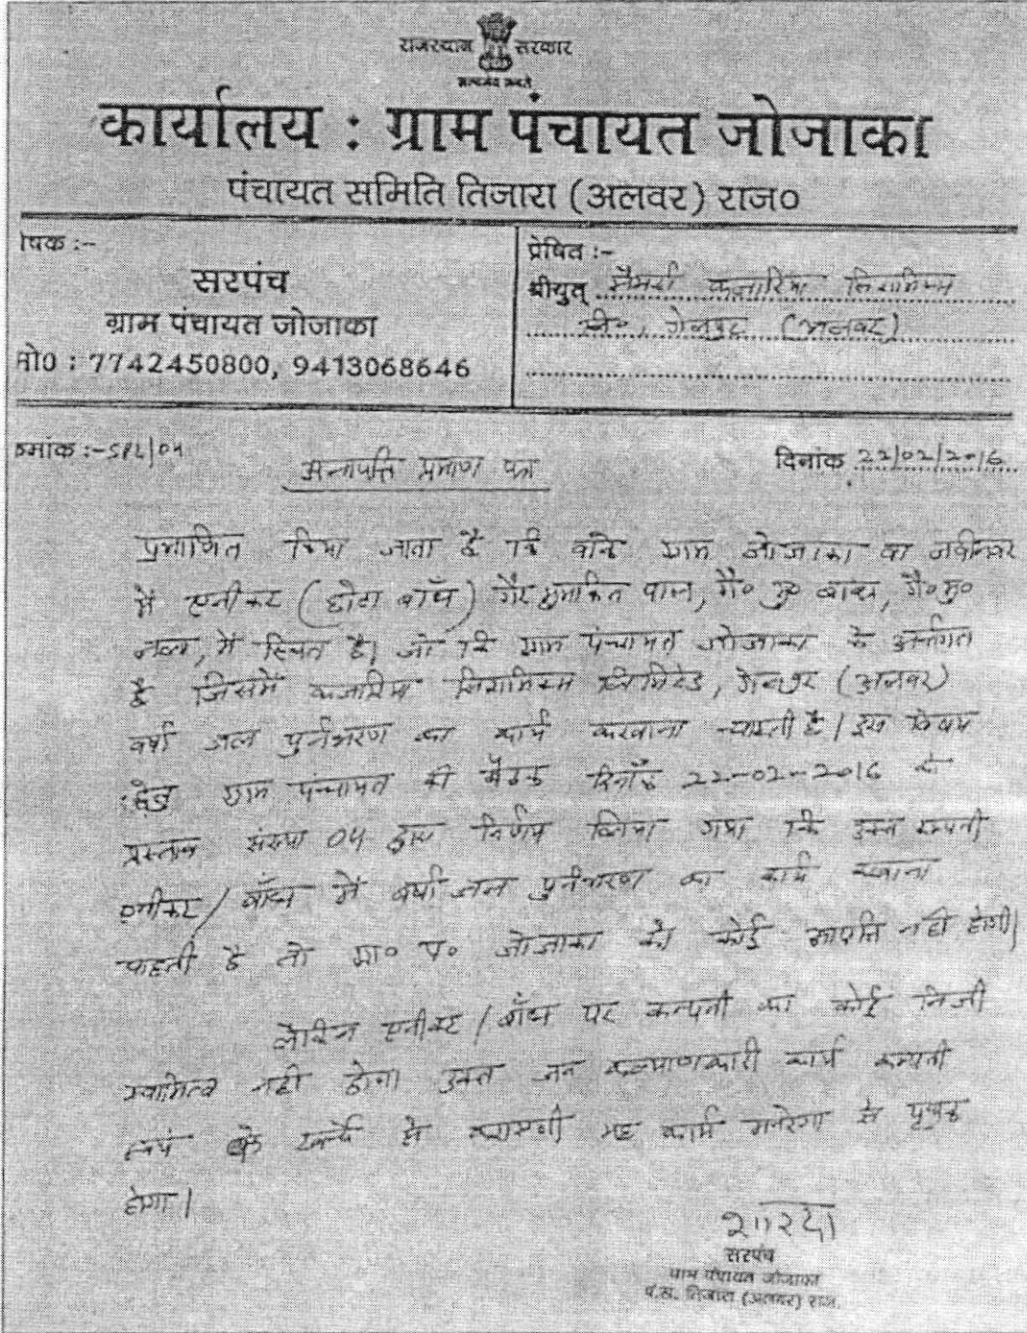 राजस्थान सरकार
सत्यमेव जयते
कार्यालय : ग्राम पंचायत जोजाका
पंचायत समिति तिजारा (अलवर) राज०
षक :-
सरपंच
ग्राम पंचायत जोजाका
मो0 : 7742450800, 9413068646
प्रेषित :-
श्रीयुत् मैसर्स कजारिया सिरामिक्स
लि०, गेलपुर (अलवर)
क्रमांक :- SPL/04
दिनांक 22/02/2016
अनापत्ति प्रमाण पत्र
प्रमाणित किया जाता है कि ग्राम जोजाका व
में एनीकट (छोटा बाँध) गैर मुमकिन पाल, गै० मु० बान्ध, गै० मु०
में स्थित है। जो कि ग्राम पंचायत जोजाका के अर्न्तगत
है जिसमें कजारिया सिरामिक्स लिमिटेड, गेलपुर (अलवर)
वर्षा जल पुर्नभरण का कार्य करवाना चाहती है। इस विषय
हेतु ग्राम पंचायत की बैठक दिनाँक 22-02-2016 के
प्रस्ताव संख्या 04 द्वारा निर्णय लिया गया कि उक्त कम्पनी
एनीकट/बाँध में वर्षा जल पुर्नभरण का कार्य करवाना
चाहती है तो ग्रा० पं० जोजाका को कोई आपत्ति नही होगी।
लेकिन एनीकट/बाँध पर कम्पनी का कोई निजी
स्वामित्व नही होगा उक्त जन कल्याणकारी कार्य कम्पनी
स्वयं के खर्चे से करायेगी यह कार्य मनरेगा से पृथक
होगा।
शारदा
सरपंच
ग्राम पंचायत जोजाका
पं.स. तिजारा (अलवर) राज.